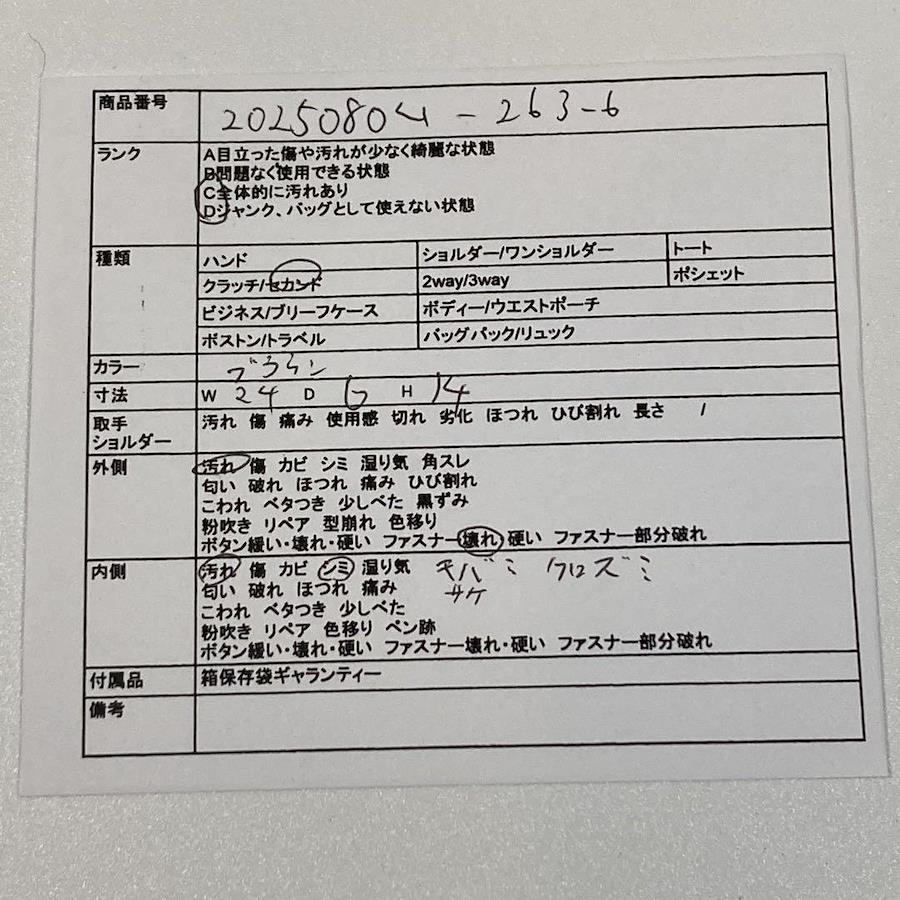 商品番号 20250804-263-6
ランク A目立った傷や汚れが少なく綺麗な状態
B問題なく使用できる状態
C全体的に汚れあり
Dジャンク、バッグとして使えない状態
種類 ハンド ショルダー/ワンショルダー トート
クラッチ/セカンド 2way/3way ポシェット
ビジネス/ブリーフケース ボディー/ウエストポーチ
ボストン/トラベル バッグパック/リュック
カラー ブラウン
寸法 W 24 D 6 H 14
取手 汚れ 傷 痛み 使用感 切れ 劣化 ほつれ ひび割れ 長さ /
ショルダー
外側 汚れ 傷 カビ シミ 湿り気 角スレ
匂い 破れ ほつれ 痛み ひび割れ
こわれ ベタつき 少しべた 黒ずみ
粉吹き リペア 型崩れ 色移り
ボタン緩い・壊れ・硬い ファスナー壊れ・硬い ファスナー部分破れ
内側 汚れ 傷 カビ シミ 湿り気 キバミ クロズミ
匂い 破れ ほつれ 痛み サケ
こわれ ベタつき 少しべた
粉吹き リペア 色移り ペン跡
ボタン緩い・壊れ・硬い ファスナー壊れ・硬い ファスナー部分破れ
付属品 箱保存袋ギャランティー
備考